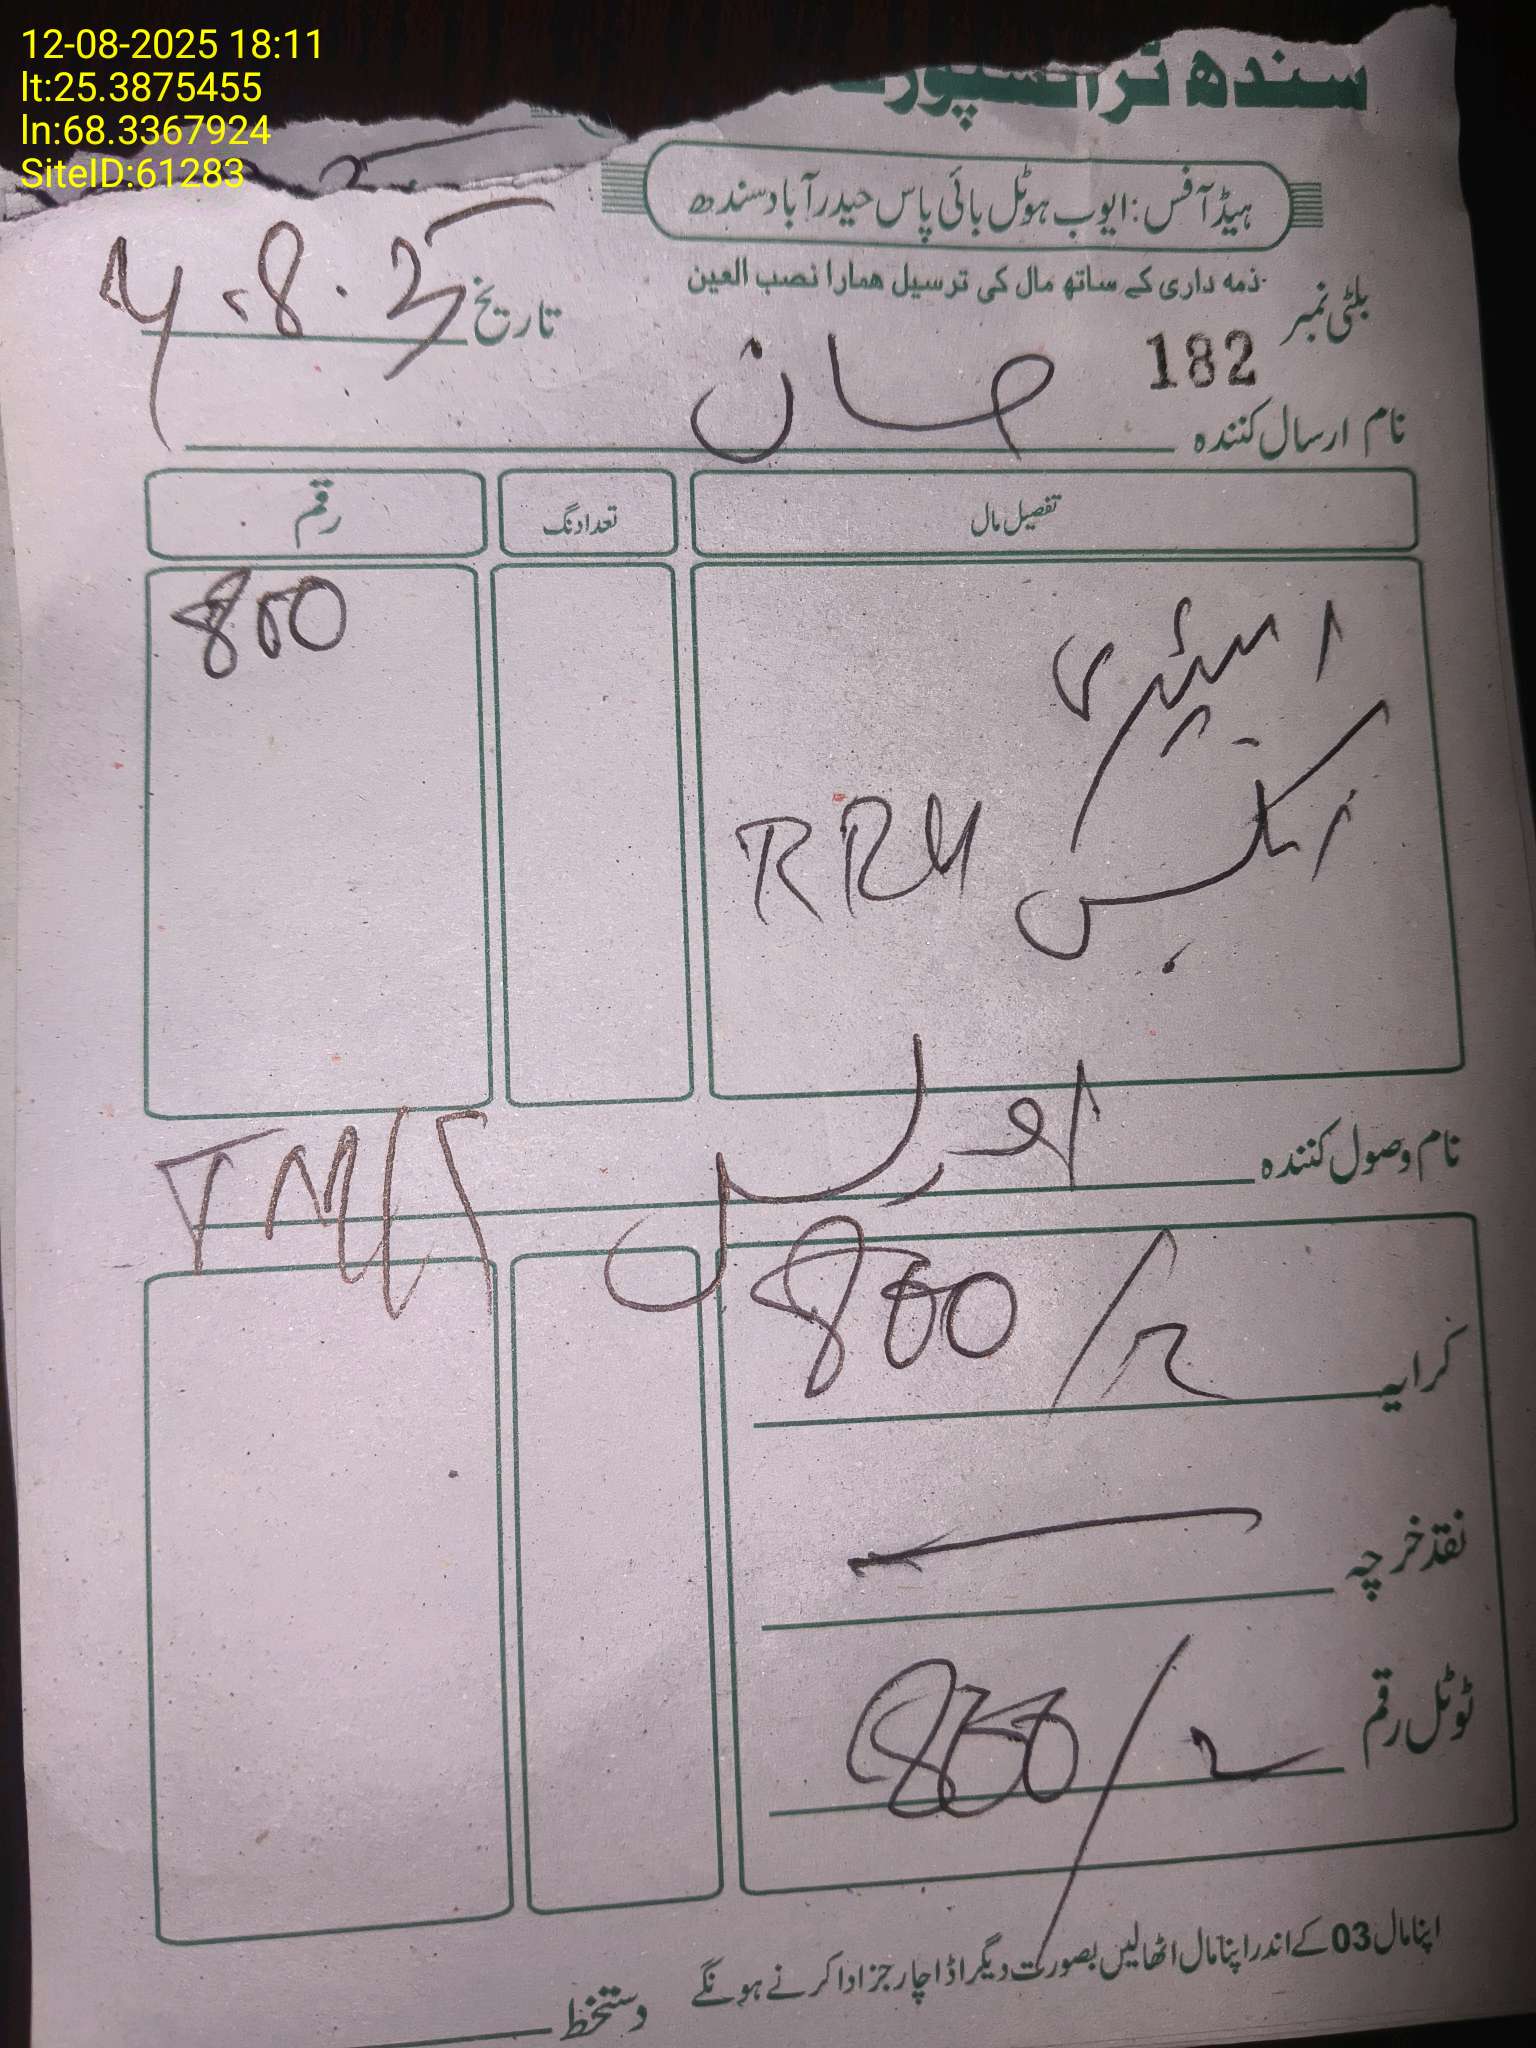 12-08-2025 18:11
lt:25.3875455
ln:68.3367924
SiteID:61283
سندھ ٹرانسپورٹ
ہیڈ آفس: ایوب ہوٹل بائی پاس حیدرآباد سندھ
ذمہ داری کے ساتھ مال کی ترسیل ہمارا نصب العین
بلٹی نمبر 182
تاریخ 8.25
نام ارسال کنندہ
تفصیل مال تعداد نگ رقم
800
RRU
نام وصول کنندہ
کرایہ 800/
نقد خرچہ
ٹوٹل رقم 800/
اپنا مال 03 کے اندر اپنا مال اٹھالیں بصورت دیگر اڈا چارجز ادا کرنے ہونگے
دستخط